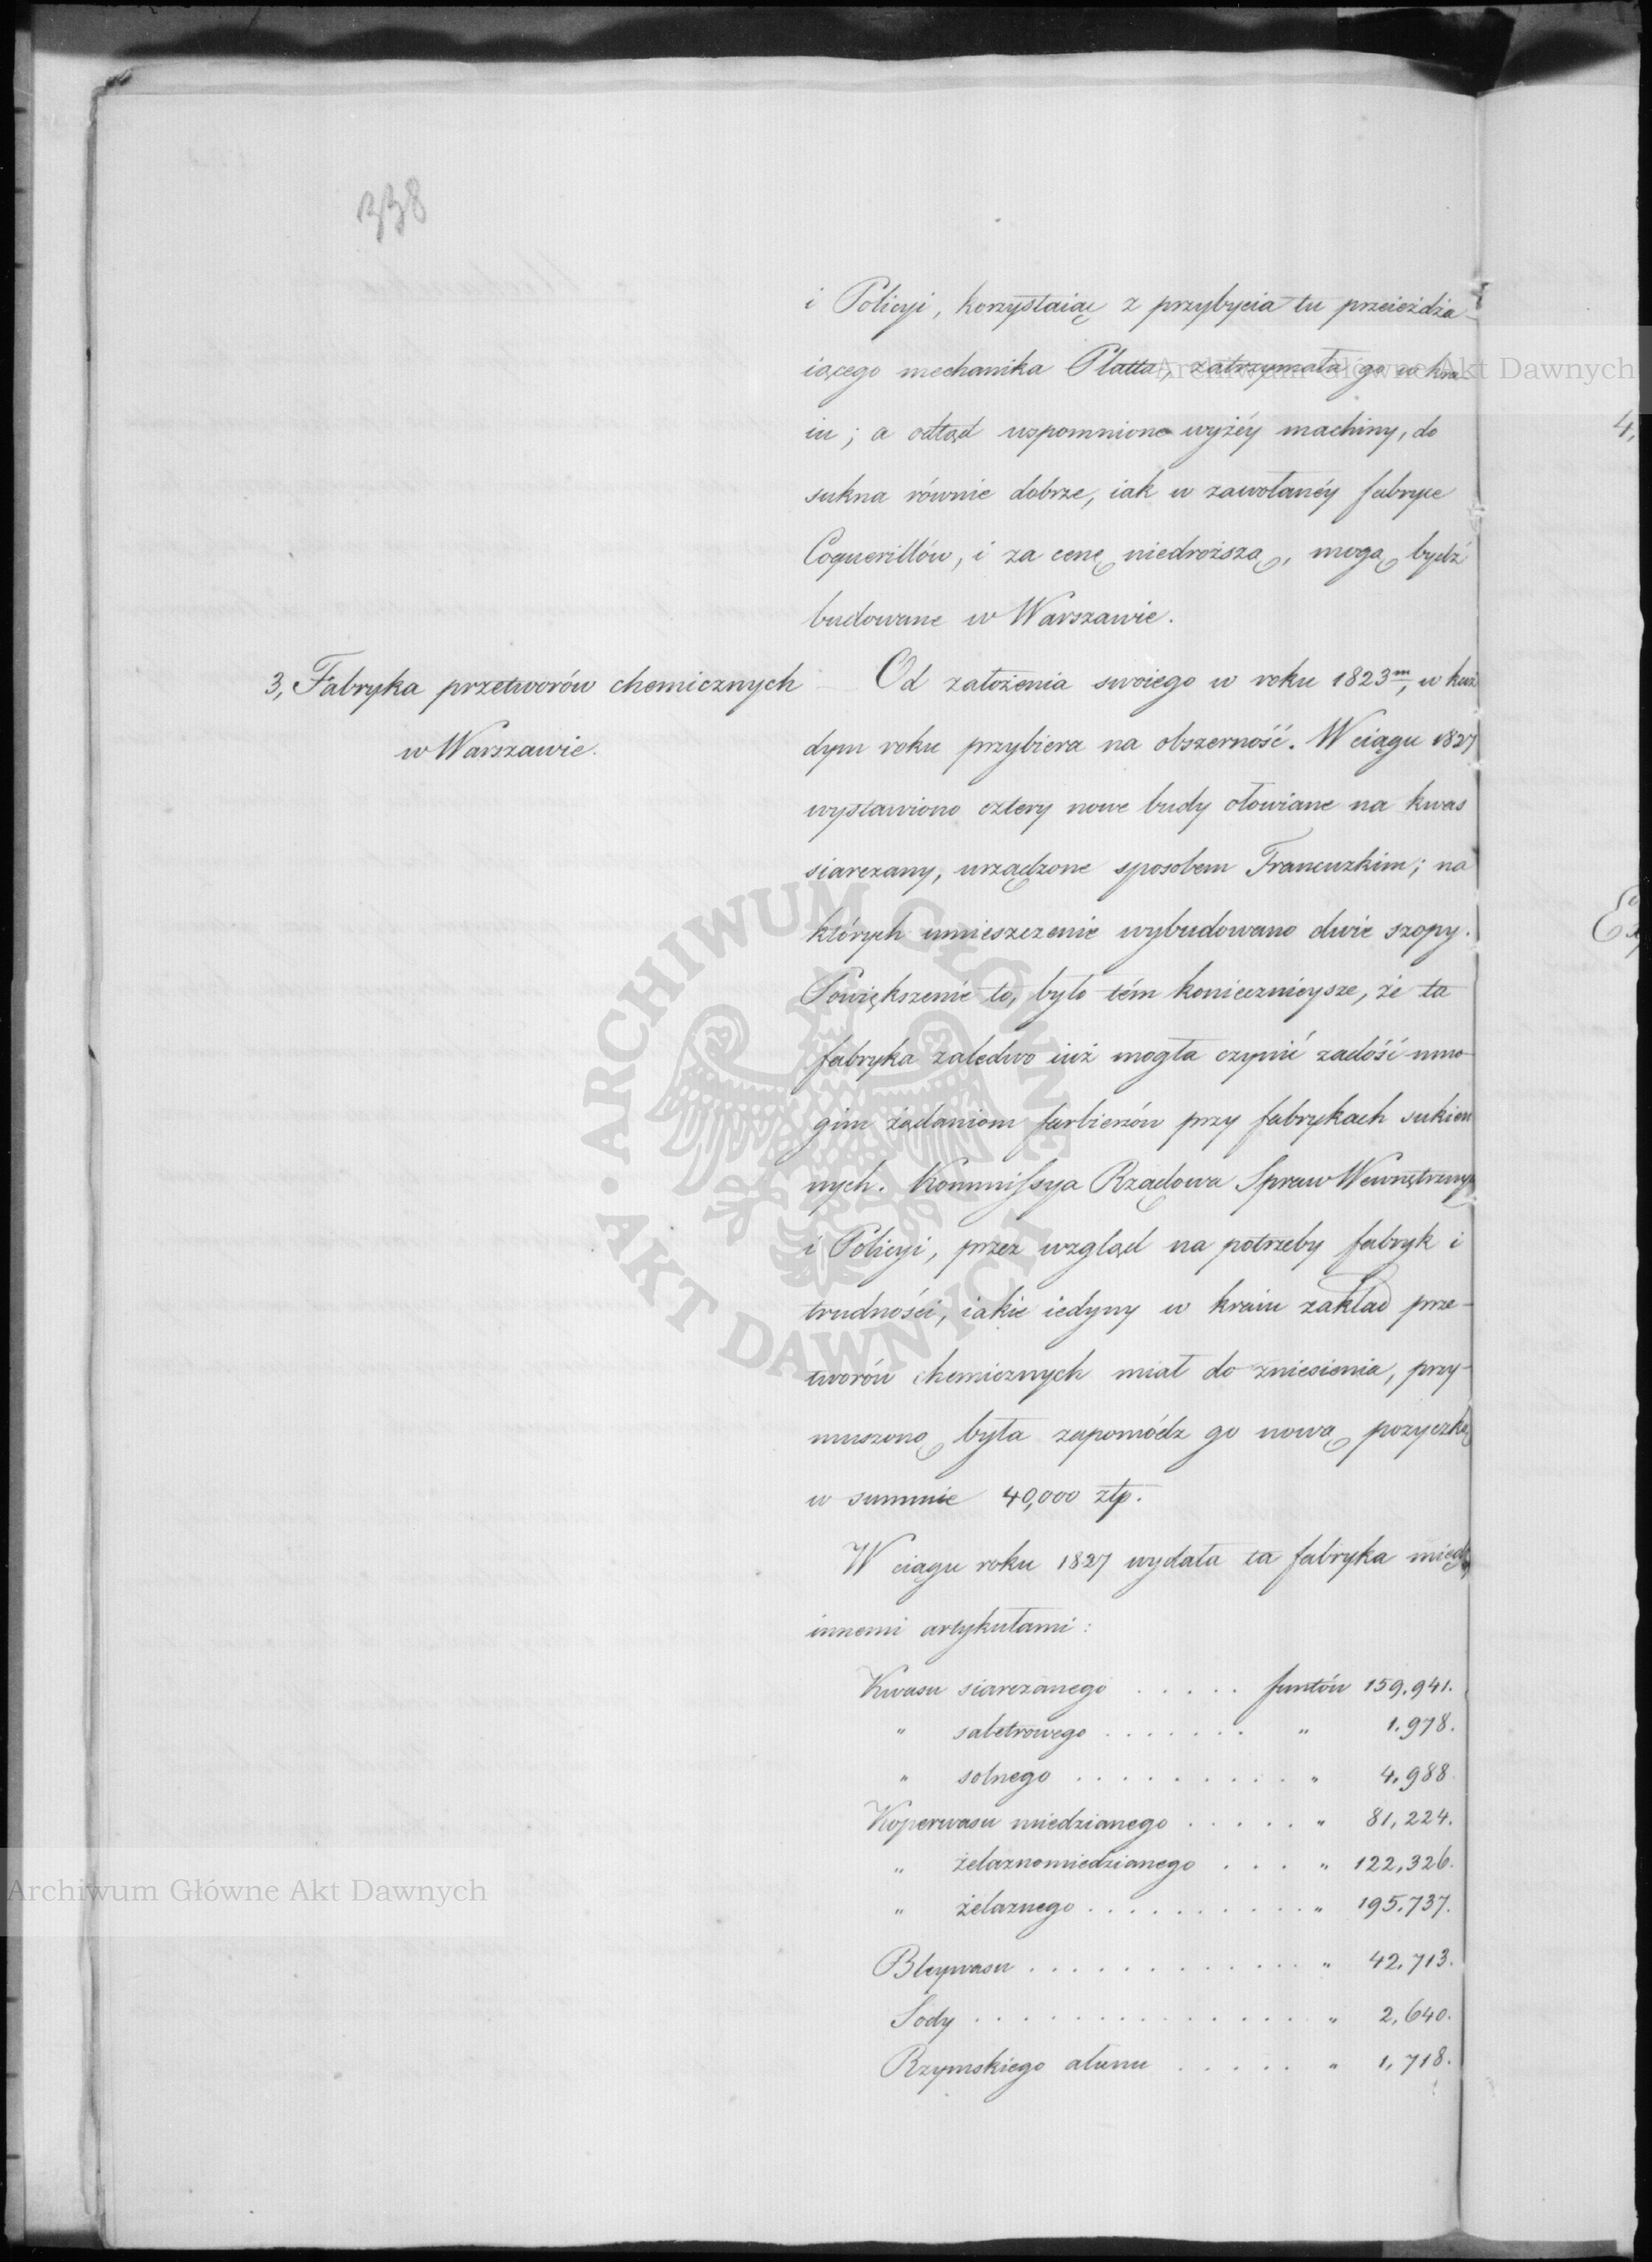 338
i Policyi, korzystaiąc z przybycia tu przeieżdża-
iącego mechanika Platta, zatrzymała go w kra-
iu; a odtąd wspomnione wyżéy machiny, do
sukna równie dobrze, iak w zawołanéy fabryce
Coquerillów, i za cenę niedroższą, mogą bydź
budowane w Warszawie.
3, Fabryka przetworów chemicznych
w Warszawie.
Od założenia swoiego w roku 1823m, w każ
dym roku przybiera na obszerność. W ciągu 1827
wystawiono cztery nowe budy ołowiane na kwas
siarczany, urządzone sposobem Francuzkim; na
których umieszczenie wybudowano dwie szopy.
Powiększenie to, było tém koniecznieysze, że ta
fabryka zaledwo iuż mogła czynić zadość mno-
gim żądaniom farbierzów przy fabrykach sukien
nych. Kommissya Rządowa Spraw Wewnętrznych
i Policyi, przez wzgląd na potrzeby fabryk i
trudności, iakie iedyny w kraiu zakład prze-
tworów chemicznych miał do zniesienia, przy-
muszoną była zapomódz go nową pożyczką
w summie 40,000 złp.
W ciągu roku 1827 wydała ta fabryka między
innemi artykułami:
Kwasu siarczanego . . . . . funtów 159.941.
" saletrowego . . . . . . . " 1.978.
" solnego . . . . . . . . . . " 4,988
Koperwasu miedzianego . . . . . " 81,224.
" żelaznomiedzianego . . . . " 122,326.
" żelaznego . . . . . . . . . . . " 195.737.
Bleywasu . . . . . . . . . . . . . " 42,713.
Sody . . . . . . . . . . . . . . . . " 2,640.
Rzymskiego ałunu . . . . . " 1,718.
4,
Archiwum Główne Akt Dawnych
ARCHIWUM GŁÓWNE · AKT DAWNYCH ·
Archiwum Główne Akt Dawnych